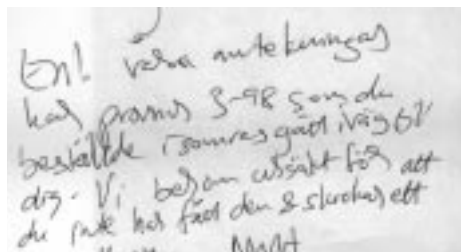 Enl. våra anteckningar
har pranus 3-98 som du
beställde i somras gått iväg till
dig. Vi ber om ursäkt för att
du inte har fått den & skickar ett
nytt